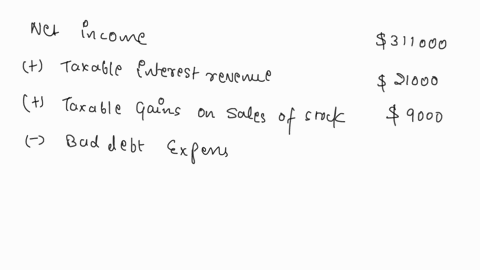 Net income $311000
(+) Taxable interest revenue $21000
(+) Taxable Gains on sales of stock $9000
(-) Bad debt Expens